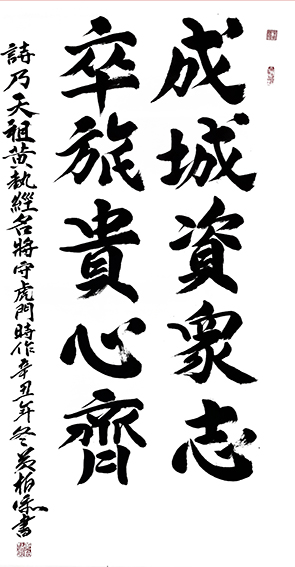 成城資衆志
卒旅貴心齊
詩乃天祖黃執經名將守虎門時作辛丑年冬黃柏深書